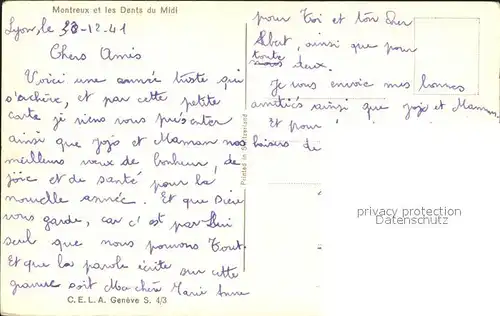 Montreux et les Dents du Midi
Lyon, le 28-12-41
Chers Amis
Voici une année triste qui
s'achève, et par cette petite
carte je viens vous présenter
ainsi que Jojo et Maman nos
meilleurs vœux de bonheur, de
joie et de santé pour la
nouvelle année. Et que Dieu
vous garde, car c'est par Lui
seul que nous pouvons Tout.
Et que la parole écrite sur cette
gravure soit Ma chère Marie Anne
C.E.L.A. Genève S. 4/3
Printed in Switzerland
pour Toi et ton cher
Albert, ainsi que pour
toute
nous deux.
Je vous envoie mes bonnes
amitiés ainsi que Jojo et Maman.
Et pour
baisers de
privacy protection
Datenschutz